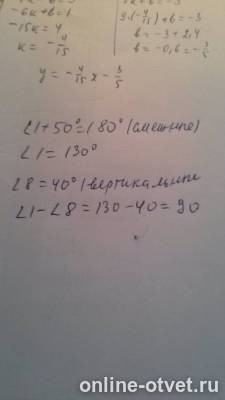 -6к+в=1
-15к=4
к=-4/15
9·(-4/15)+в=-3
в=-3+2,4
в=-0,6=-3/5
y=-4/15x-3/5
∠1+50°=180° (смежные)
∠1=130°
∠8=40° (вертикальные
∠1-∠8=130-40=90
online-otvet.ru